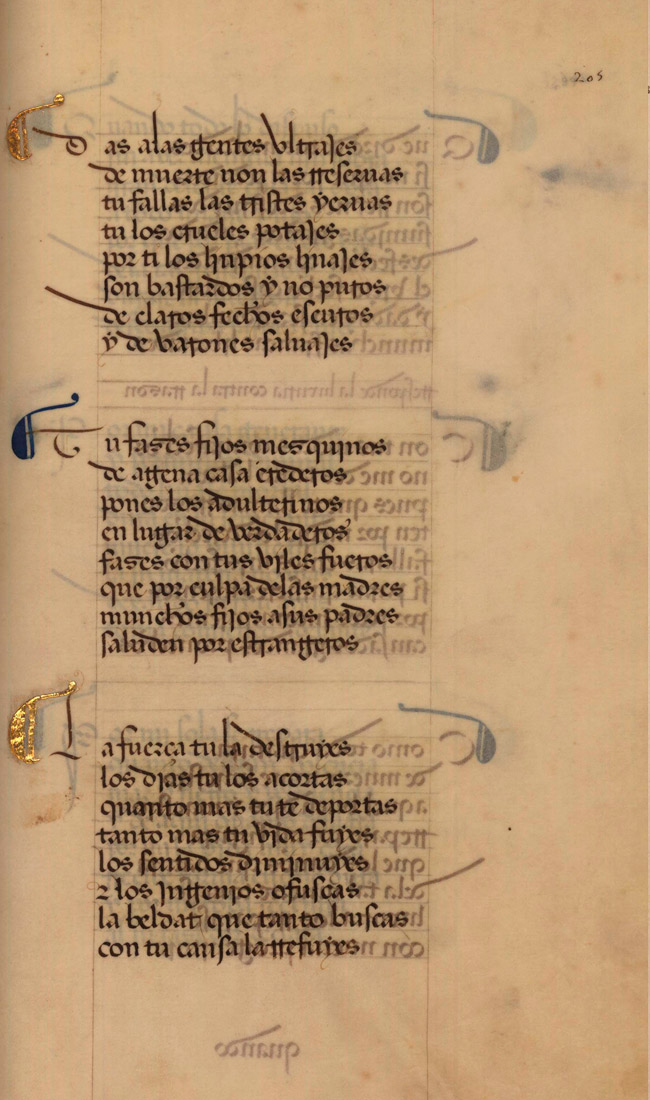 205
Das alas gentes vltrajes
de muerte non las rreseruas
tu fallas las tristes yeruas
tu los crueles potajes
por ti los linpios linajes
son bastardos y no puros
de claros fechos escuros
y de varones saluajes
Tu fases fijos mesquinos
de agena casa erederos
pones los adulterinos
en lugar de verdaderos
fases con tus viles fueros
que por culpa delas madres
munchos fijos asus padres
saluden por estrangeros
La fuerça tu la destruyes
los dias tu los acortas
quanto mas tu te deportas
tanto mas tu vida fuyes
los sentidos diminuyes
z los jngenios ofuscas
la beldat que tanto buscas
con tu causa la rrefuyes